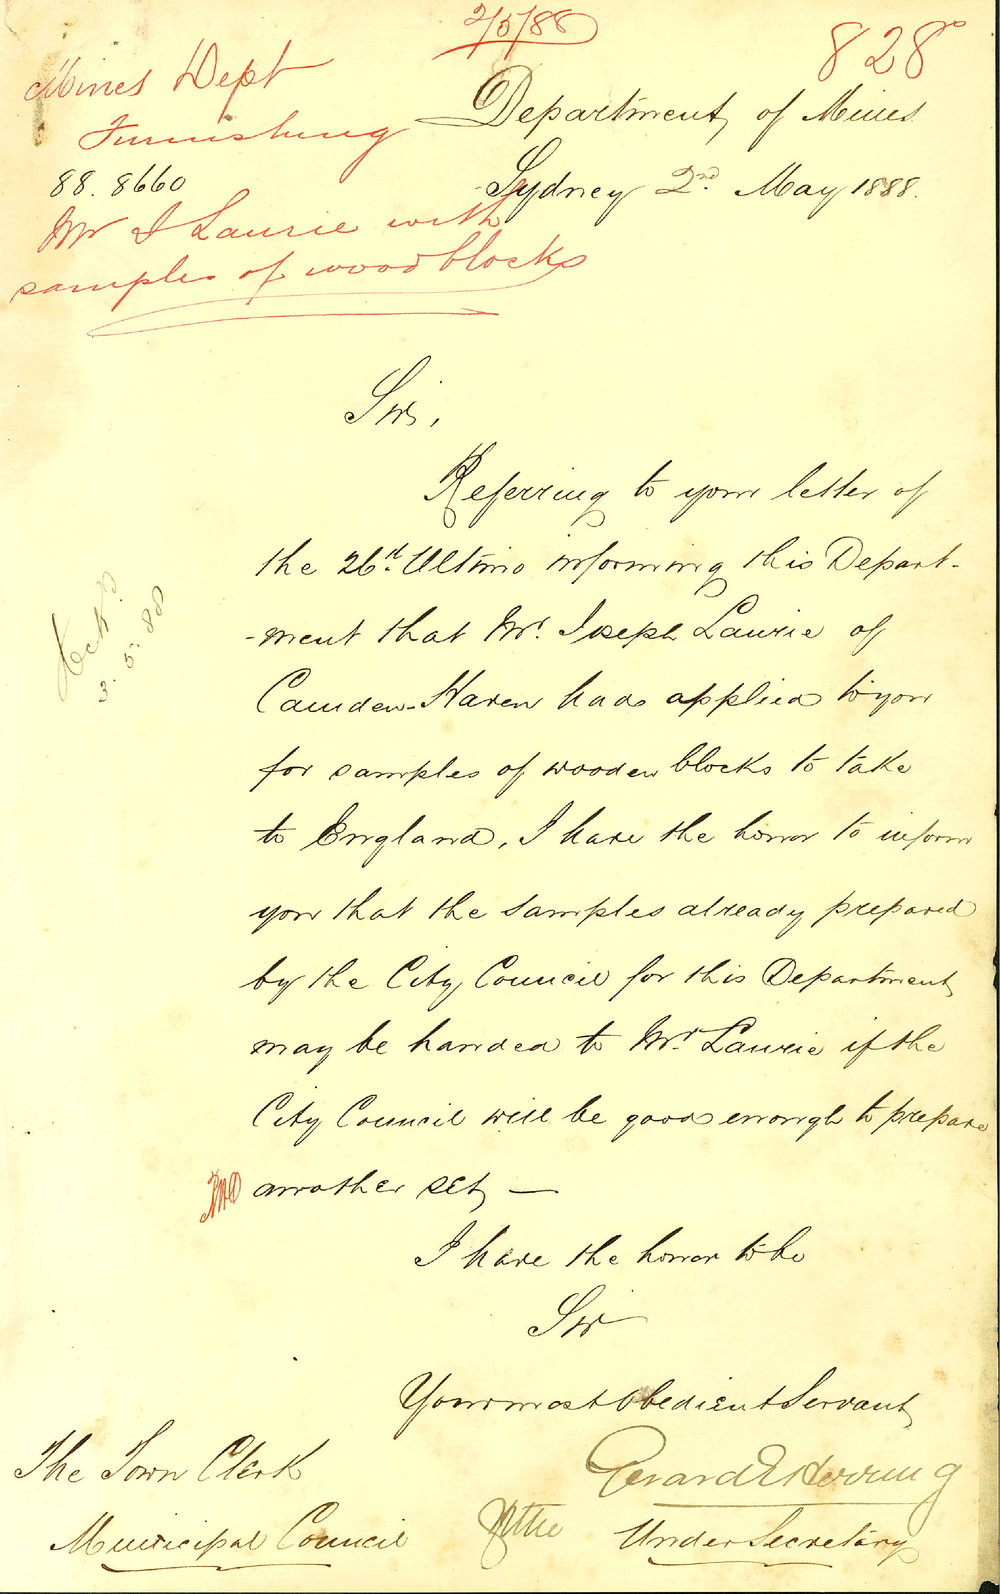 2/5/88
828
Mines Dept
Furnishing
88. 8660
Mr J Laurie with
samples of woodblocks
Department of Mines
Sydney 2nd. May 1888.
Sir,
Referring to your letter of
the 26th. Ultimo informing this Depart-
-ment that Mr. Joseph Laurie of
Camden-Haven has applied to you
for samples of wooden blocks to take
to England, I have the honor to inform
you that the samples already prepared
by the City Council for this Department
may be handed to Mr. Laurie if the
City Council will be good enough to prepare
another set —
I have the honor to be
Sir
Your most obedient Servant
Gerard E Herring
for the Under Secretary
Ackd.
3. 5. 88
The Town Clerk
Municipal Council